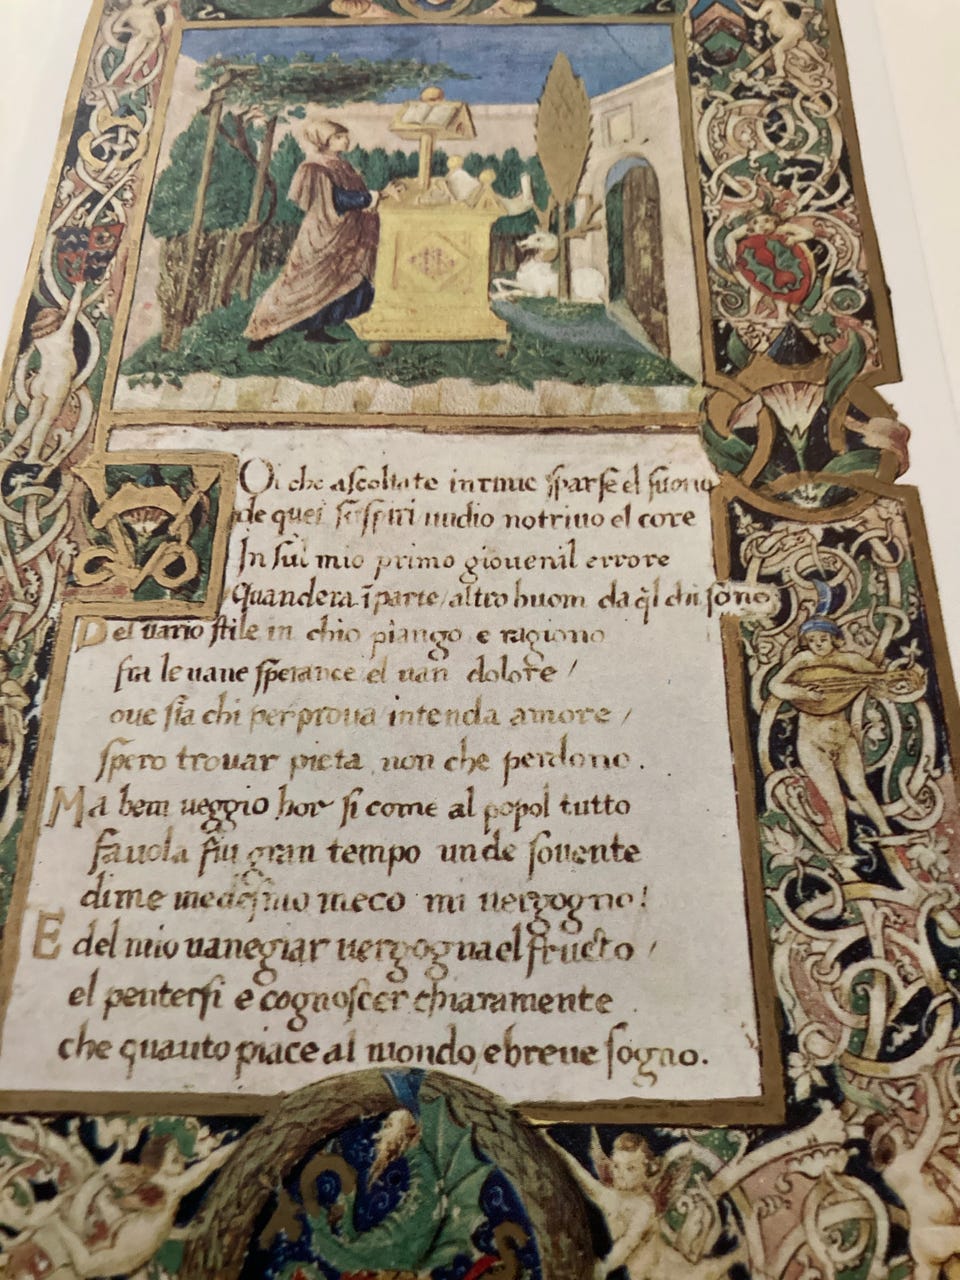 Oi che ascoltate in rime sparse el suono
de quei sospiri undio notrivo el core
In sul mio primo giovenil errore
Quandera ī parte / altro huom da ql chi sono
Del vario stile in chio piango e ragiono
fra le vane sperance el van dolore /
ove sia chi per prova intenda amore /
spero trovar pieta non che perdono .
Ma bem veggio hor si come al popol tutto
favola fui gran tempo unde sovente
di me medesmo meco mi vergogno !
E del mio vanegiar vergogna el fructo /
el pentersi e cognoscer chiaramente
che quanto piace al mondo, e breve sogno.